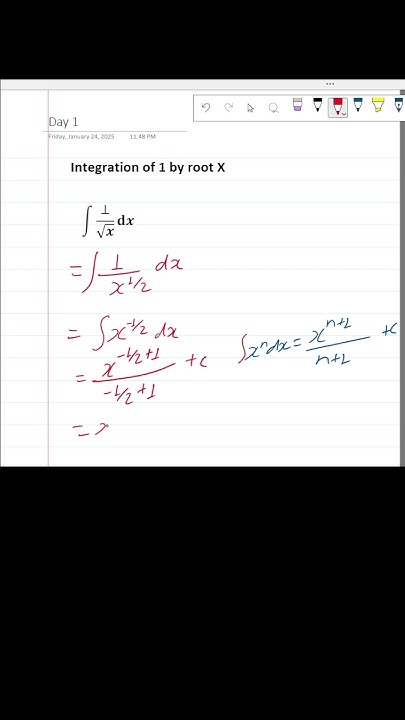 Day 1
Friday, January 24, 2025 11:48 PM
Integration of 1 by root X
∫ 1/√x dx
= ∫ 1/x^1/2 dx
= ∫ x^-1/2 dx
= x^-1/2+1 / -1/2+1 + c
∫ x^n dx = x^n+1 / n+1 + c
= x